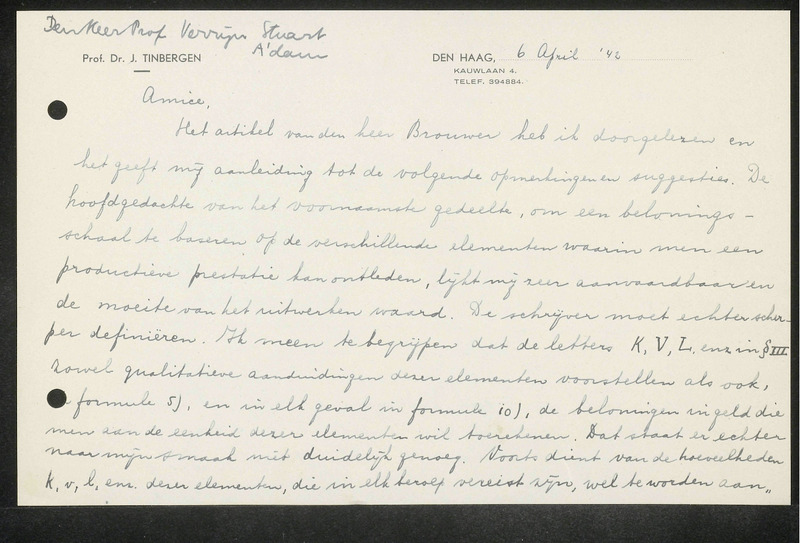 Den Heer Prof Verrijn Stuart
A'dam
Prof. Dr. J. TINBERGEN
DEN HAAG, 6 April '42
KAUWLAAN 4.
TELEF. 394884.
Amice,
Het artikel van den heer Brouwer heb ik doorgelezen en
het geeft mij aanleiding tot de volgende opmerkingen en suggesties. De
hoofdgedachte van het voornaamste gedeelte, om een belonings-
schaal te baseren op de verschillende elementen waarin men een
productieve prestatie kan ontleden, lijkt mij zeer aanvaardbaar en
de moeite van het uitwerken waard. De schrijver moet echter scher-
per definiëren. Ik meen te begrijpen dat de letters K, V, L, enz in § III
zowel qualitatieve aanduidingen dezer elementen voorstellen als ook,
formule 5), en in elk geval in formule 10), de beloningen in geld die
men aan de eenheid dezer elementen wil toerekenen. Dat staat er echter
naar mijn smaak niet duidelijk genoeg. Voorts dient van de hoeveelheden
k, v, l, enz. dezer elementen, die in elk beroep vereist zijn, wel te worden aan„